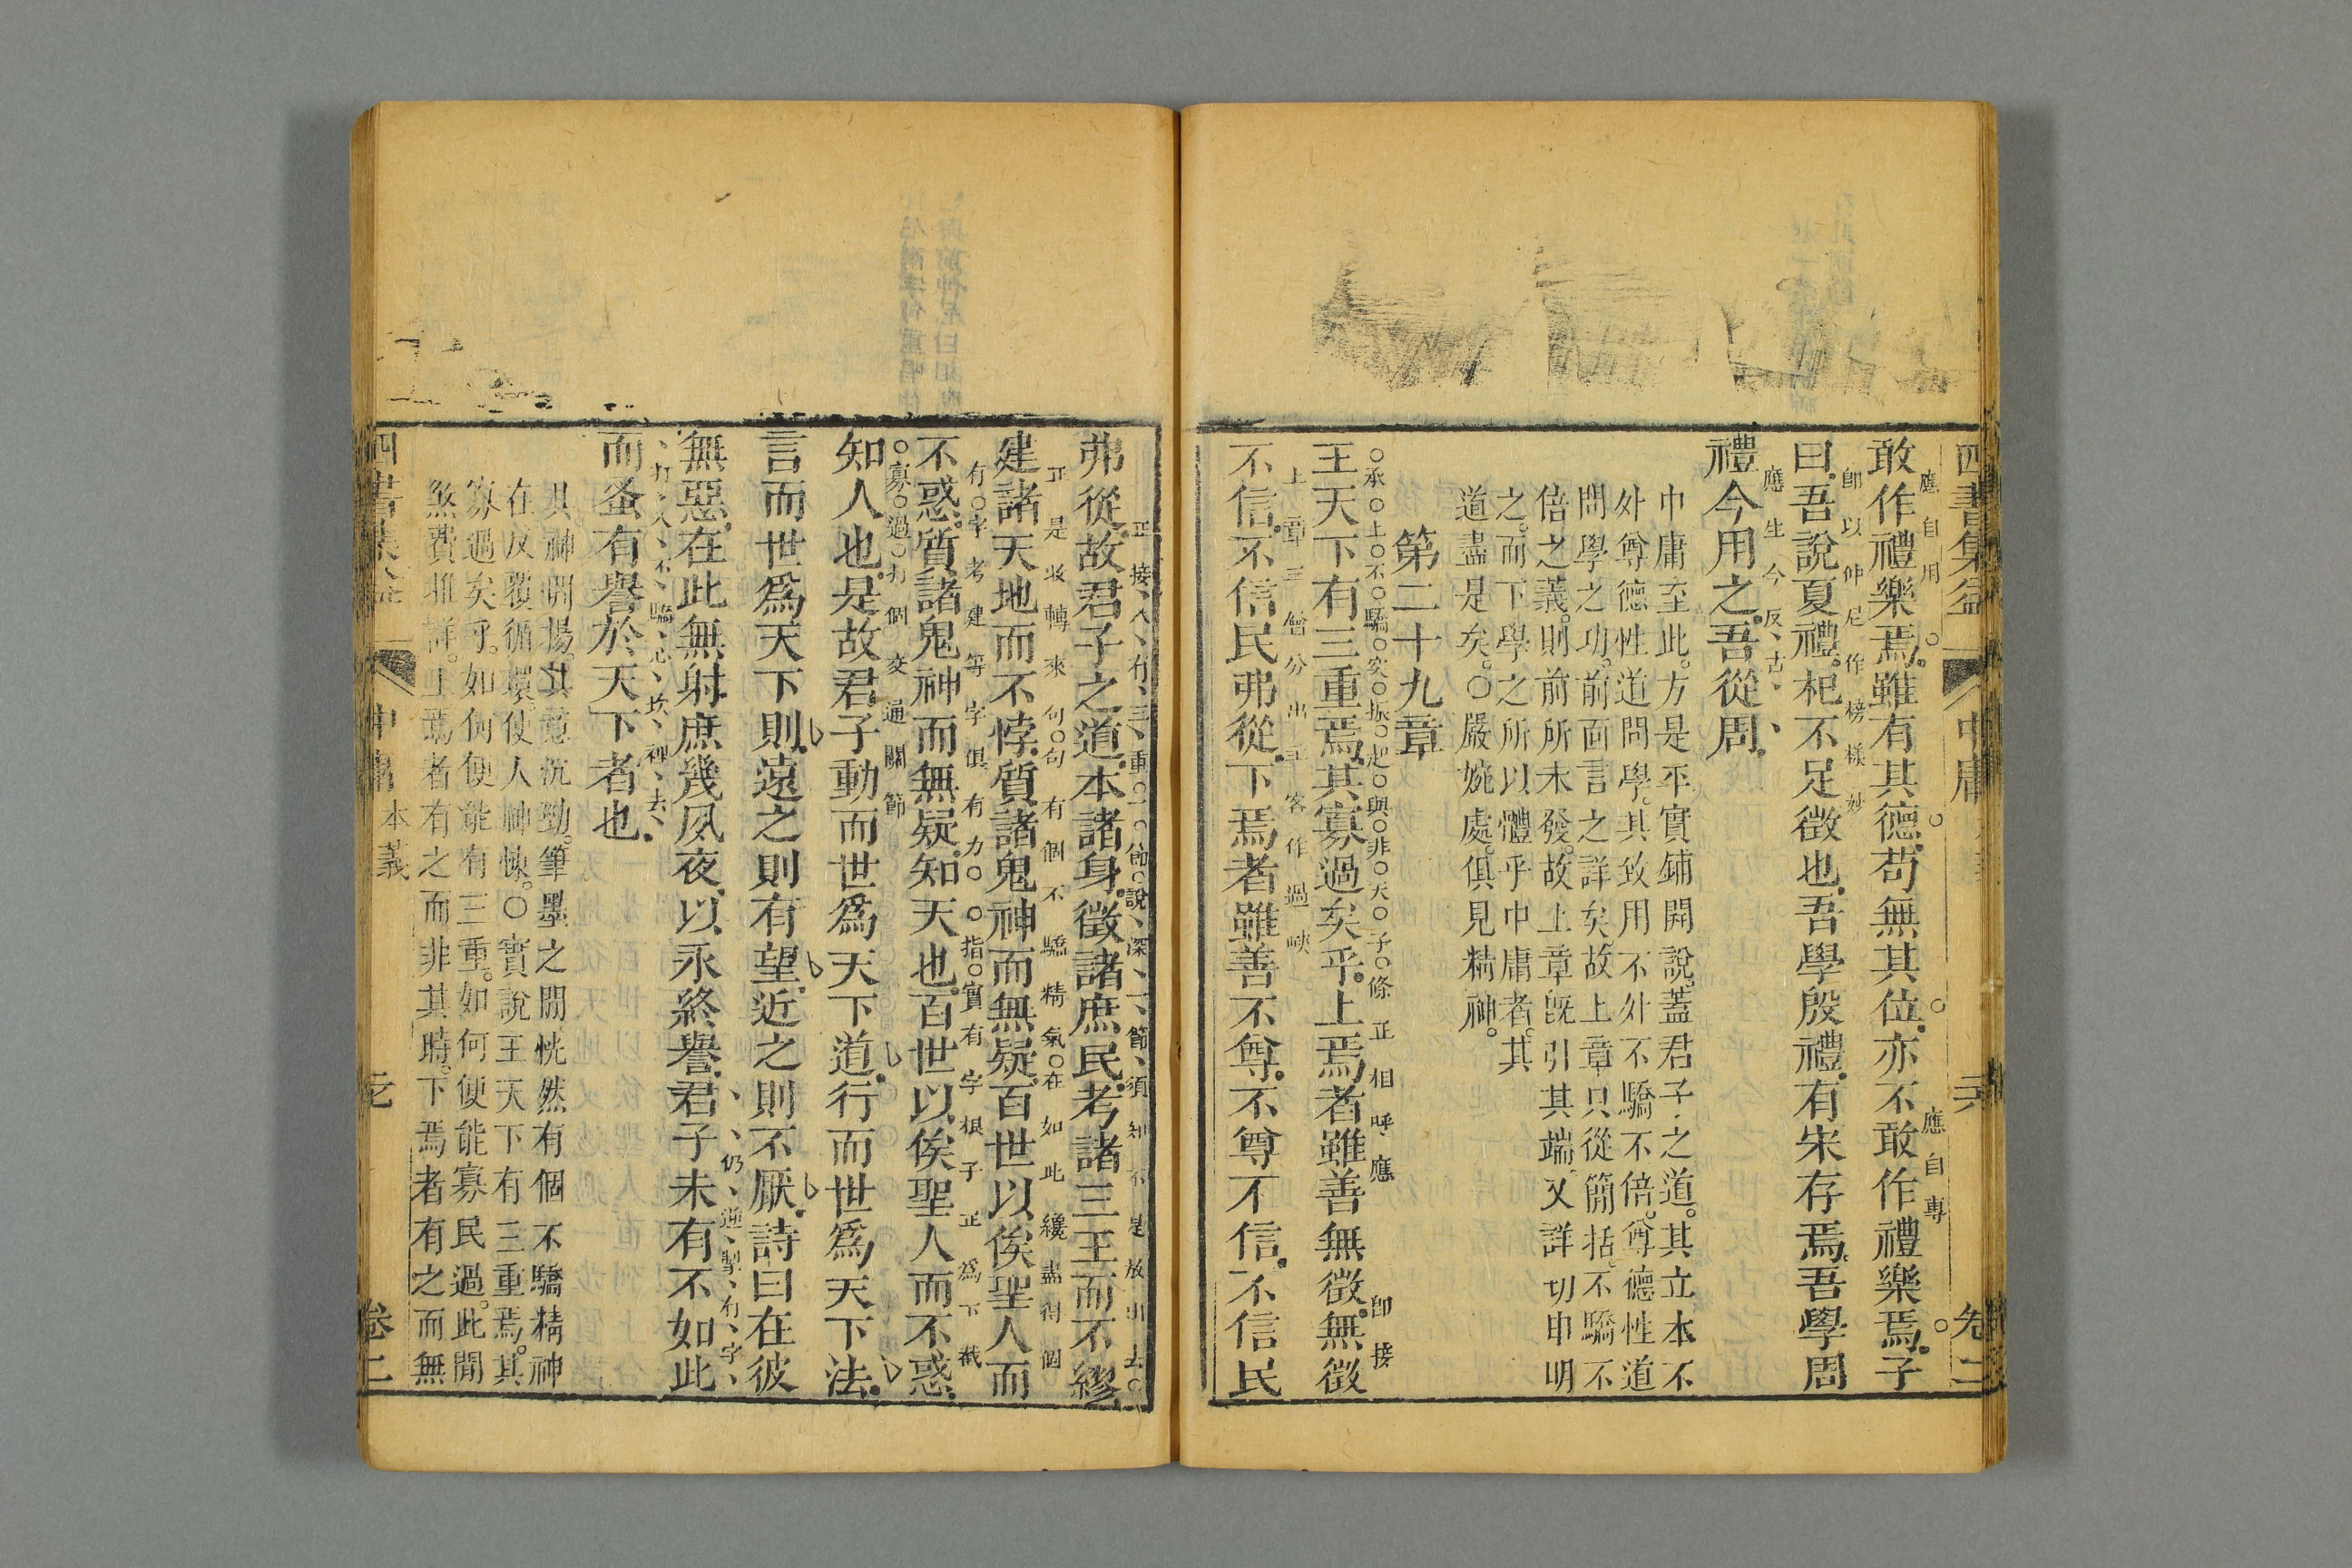 四書集益
中庸
卷二
應自用
敢作禮樂焉。雖有其德。苟無其位。亦不敢作禮樂焉。子
應自專
即以仲尼作榜樣妙
曰。吾說夏禮。杞不足徵也。吾學殷禮。有宋存焉。吾學周
應生今反古
禮今用之。吾從周。
中庸至此。方是平實鋪開說。蓋君子之道。其立本不
外尊德性道問學。其致用不外不驕不倍。尊德性道
問學之功。前面言之詳矣。故上章只從簡括。不驕不
倍之義。則前所未發。故上章旣引其端。又詳切申明
之。而下學之所以體乎中庸者。其
道盡是矣。○嚴婉處。俱見精神。
第二十九章
承上不驕突振起與非天子條正相呼應
即接
王天下有三重焉。其寡過矣乎。上焉者雖善無徵。無徵
上章三層分出主客作過峽
不信。不信民弗從。下焉者雖善不尊。不尊不信。不信民
正接入有三重一節說深一節須知不是放出去
弗從。故君子之道。本諸身。徵諸庶民。考諸三王而不繆。
正是收轉來句句有個不驕精氣在如此纔盡得個
建諸天地而不悖。質諸鬼神而無疑。百世以俟聖人而
有字考建等字俱有力○指實有字根子正爲下截
不惑。質諸鬼神而無疑。知天也。百世以俟聖人而不惑。
寡過打個交通關節
知人也。是故君子動而世爲天下道。行而世爲天下法。
言而世爲天下則。遠之則有望。近之則不厭。詩曰在彼
無惡。在此無射。庶幾夙夜。以永終譽。君子未有不如此
仍逆掣有字
打入不驕心坎裡去
而蚤有譽於天下者也。
其神開揚。其意沉勁。筆墨之閒恍然有個不驕精神
在反覆循環使人神悚。○實說王天下有三重焉。其
寡過矣乎。如何便能有三重。如何便能寡民過。此閒
煞費推詳。上焉者有之而非其時。下焉者有之而無
四書集益
中庸
本義
卷二